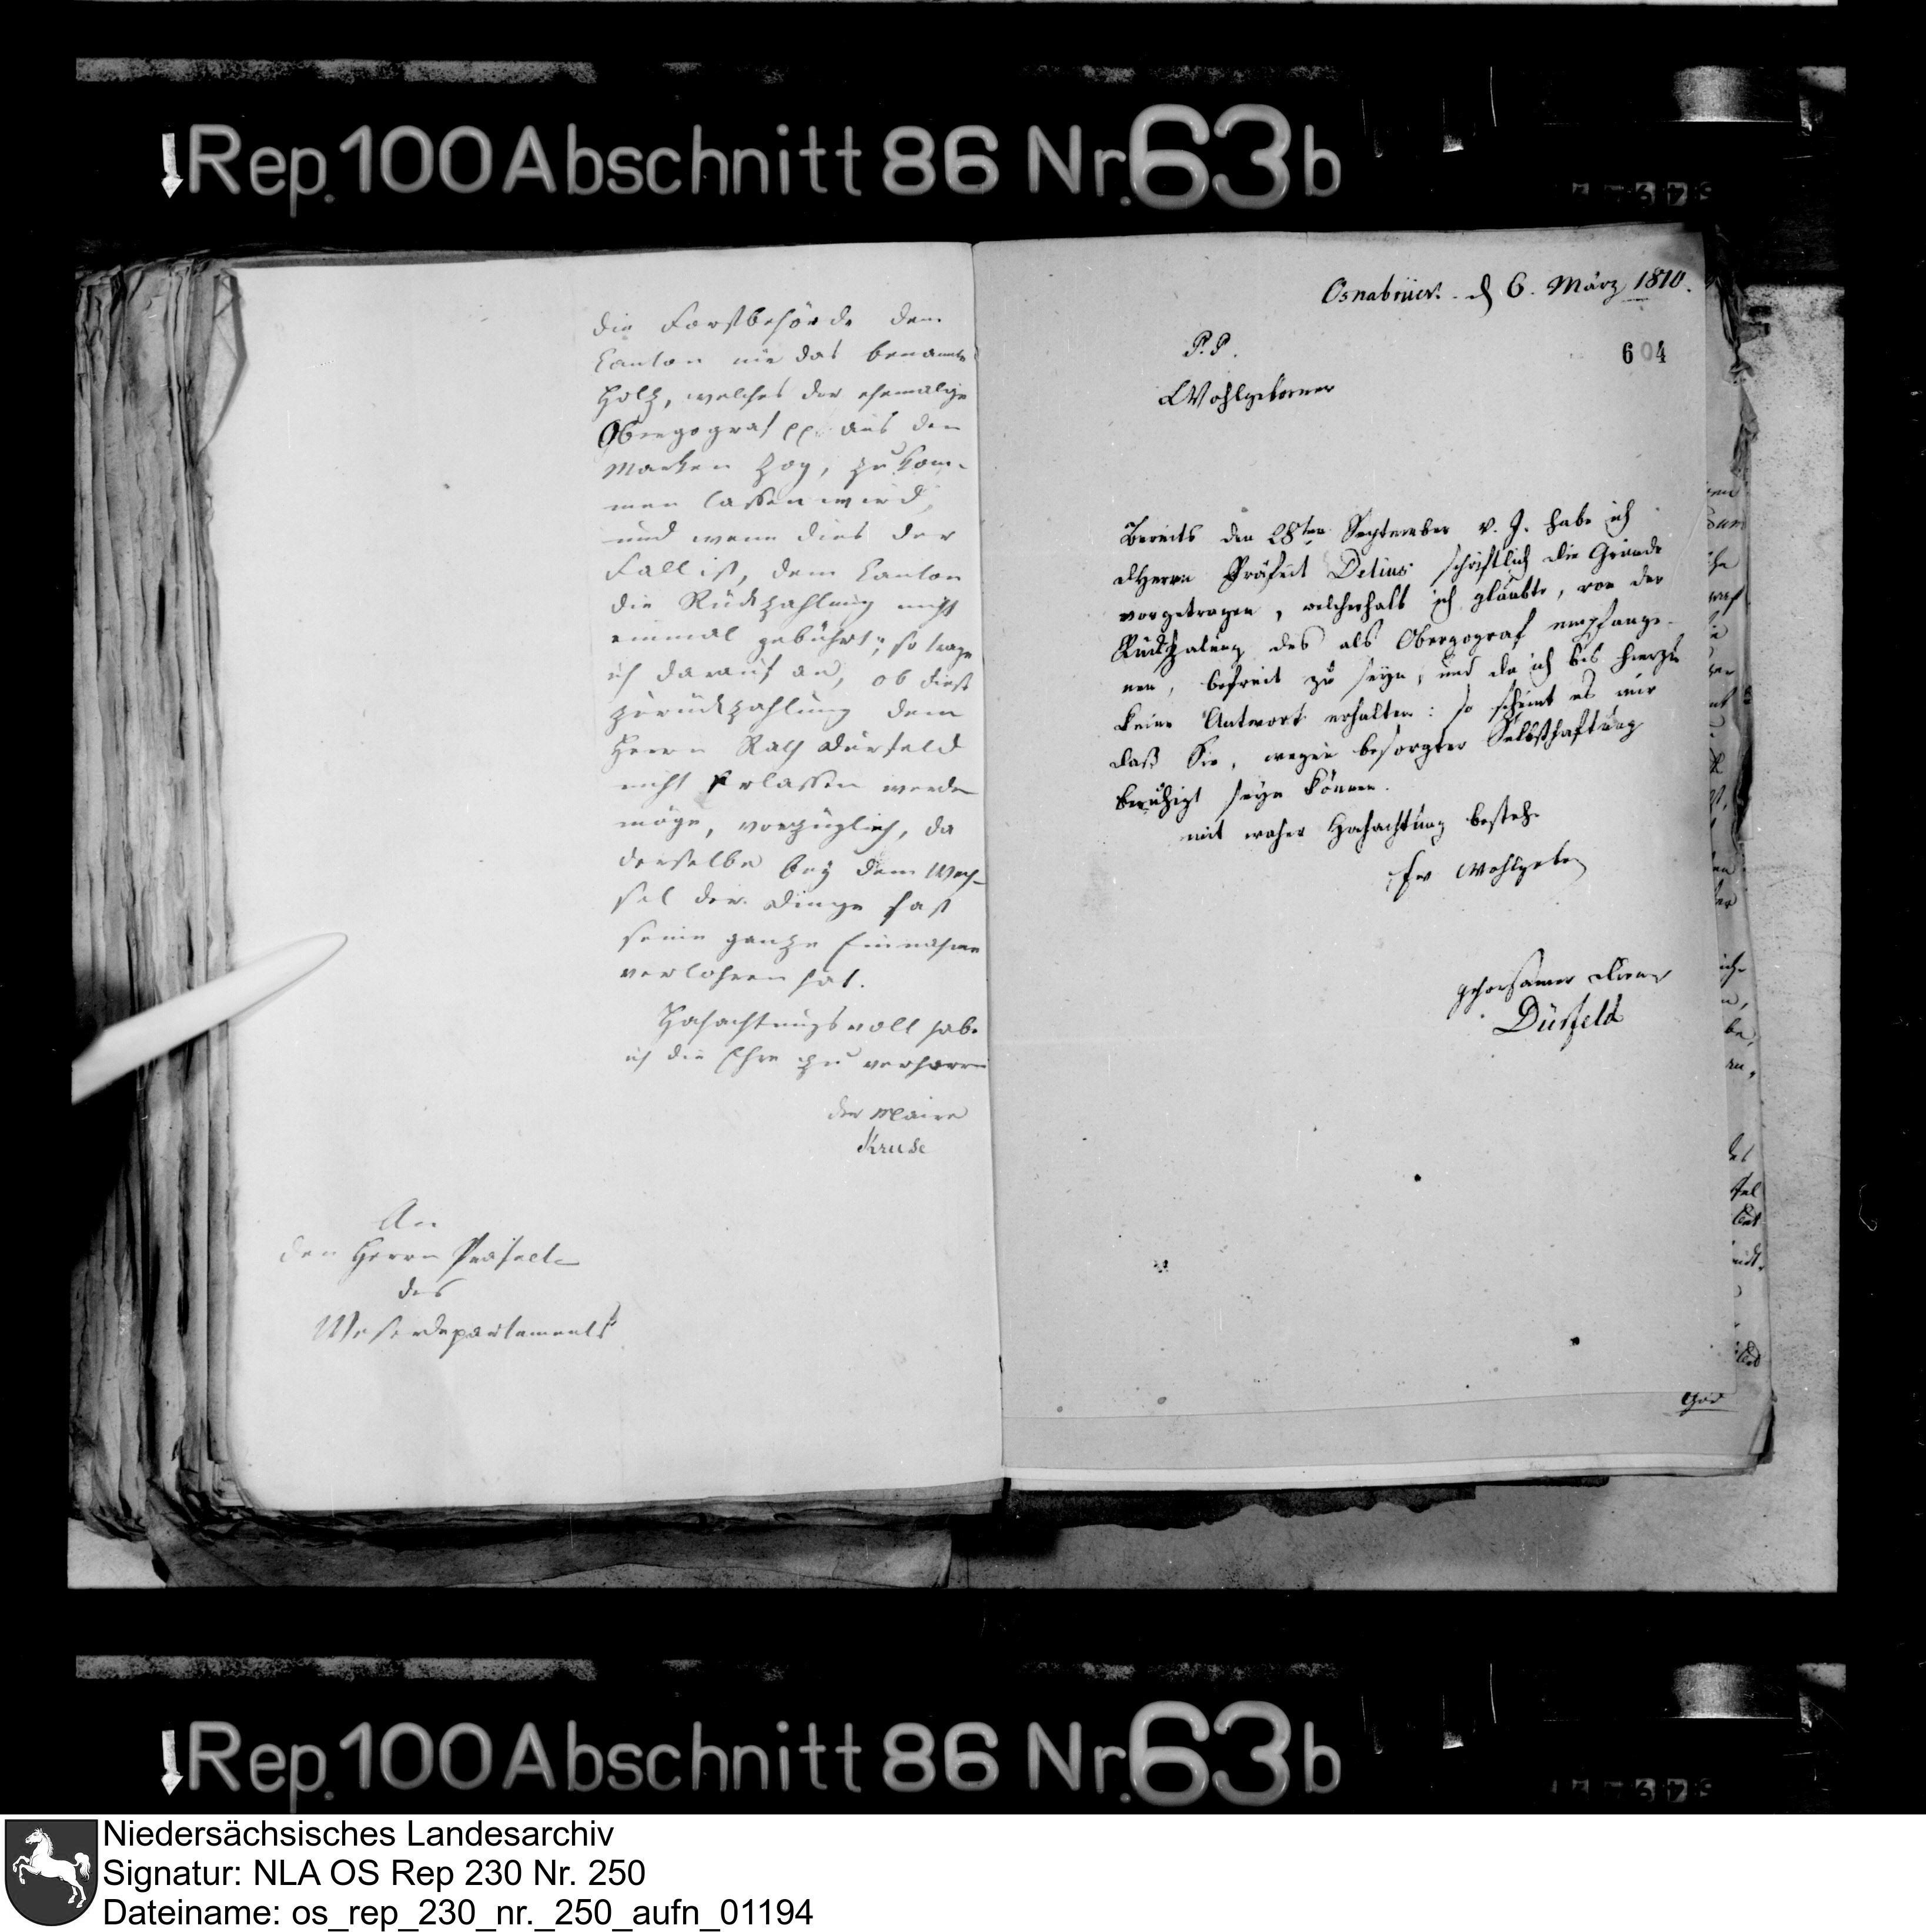 Rep. 100 Abschnitt 86 Nr. 63b
die Forstbehörde dem
Canton nie das benannte
Holz, welches der ehemalige
Obergograf pp. aus den
Marken zog, zu kom-
men lassen wird,
und wenn dies der
Fall ist, dem Canton
die Rückzahlung nicht
einmal gebührt; so trage
ich darauf an, ob diese
Zurückzahlung dem
Herrn Rath Dürfeld
nicht erlassen werden
möge, vorzüglich, da
derselbe bey dem Wech-
sel der Dinge fast
seine ganze Einnahme
verlohren hat.
Hochachtungsvoll habe
ich die Ehre zu verharren
der Maire
Kruse
An
den Herrn Präfect
des
Weserdepartements
Osnabrück d 6. März 1810.
604
P. P.
Wohlgeborner
Bereits den 28ten September v. J. habe ich
dHerrn Präfect Delius schriftlich die Gründe
vorgetragen, welcherhalb ich glaubte, von der
Rückzalung des als Obergograf empfange-
nen, befreit zu seyn, und da ich bis hierzu
keine Antwort erhalten: so scheint es mir
daß Sie, wegen besorgter Selbsthaftung
beruhigt seyn können.
mit waher Hochachtung bestehe
Ew Wohlgeb
gehorsamer Diener
Dürfeld
Rep. 100 Abschnitt 86 Nr. 63b
Niedersächsisches Landesarchiv
Signatur: NLA OS Rep 230 Nr. 250
Dateiname: os_rep_230_nr._250_aufn_01194